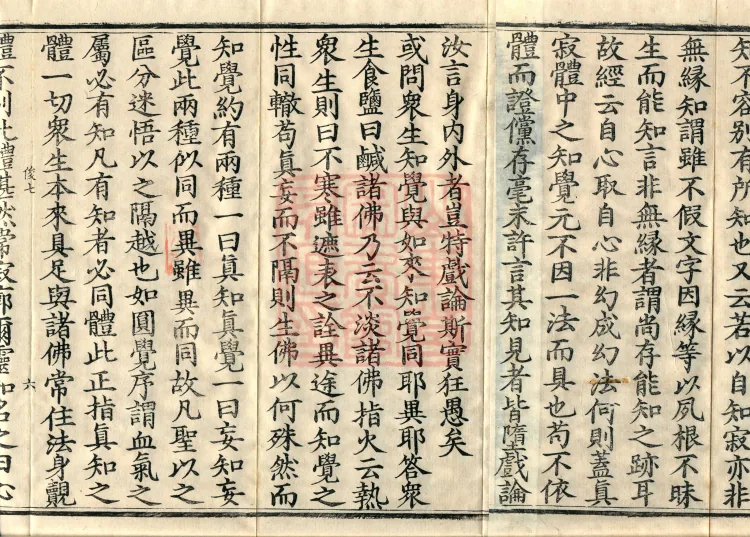 知不容別有所知也又云若以自知寂亦非
無緣知謂雖不假文字因緣等以夙根不昧
生而能知言非無緣者謂尚存能知之跡耳
故經云自心取自心非幻成幻法何則蓋眞
寂體中之知覺元不因一法而具也苟不依
體而證儻存毫末許言其知見者皆墮戲論
汝言身內外者豈特戲論斯實狂愚矣
或問衆生知覺與如來知覺同耶異耶答衆
生食鹽曰鹹諸佛乃云不淡諸佛指火云熱
衆生則曰不寒雖遮表之詮異途而知覺之
性同轍苟眞妄而不隔則生佛以何殊然而
知覺約有兩種一曰眞知眞覺一曰妄知妄
覺此兩種似同而異雖異而同故凡聖以之
區分迷悟以之隔越也如圓覺序謂血氣之
屬必有知凡有知者必同體此正指眞知之
俊七 六
體一切衆生本來具足與諸佛常住法身覿
體不別此體其常寂廓爾靈知名之曰心